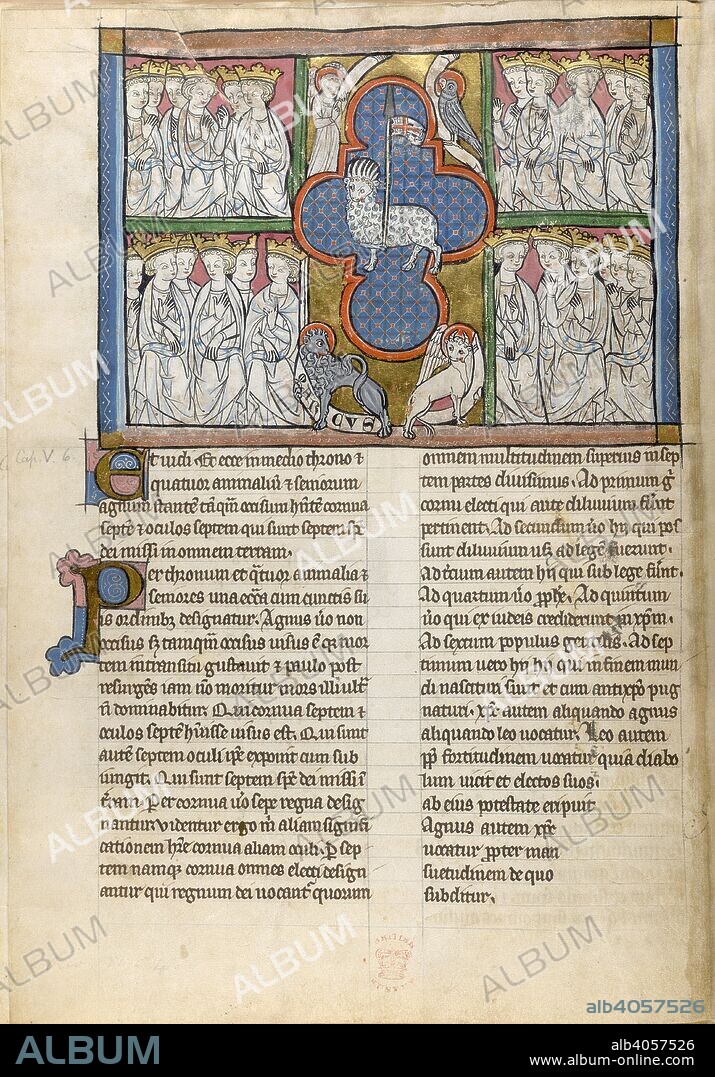 CVS
Cap. V. 6.
Et uidi Et ecce in medio throno ⁊
quatuor animalium ⁊ seniorum
agnum stantē tāq̄m occisum hn̄tem cornua
septē ⁊ oculos septem qui sunt septem sp̄s
dei missi in omnem terram.
Per thronum et q̄tuor animalia ⁊
seniores una ecc̄a cum cunctis su
is ordinib; designatur. Agnus ū̓o non
occisus s; tamquam occisus uisus ē q̓ mor
tem in transitu gustauit ⁊ paulo post
resurgēs iam ū̓o moritur mors illi ult̓
n̄ dominabitur. Qui cornua septem ⁊
oculos septē habuisse uisus est. Qui sunt
autē septem oculi ip̄e exponit cum sub
iungit. Qui sunt septem sp̄s dei missi ī
t̓ram. Per cornua ū̓o sepe regna desig
nantur. videntur ergo m̄ aliam signifi
cationem hr̄e cornua aliam oculi. Per sep
tem namq; cornua omnes electi design
antur qui regnum dei uocant̓ quorum
omnem multitudinem superius in sep
tem partes diuisimus. Ad primum g̓
cornu electi qui ante diluuium fuerunt
pertinent. Ad secundum ū̓o hii qui pos
sunt diluuium usq; ad legē fuerunt.
Ad t̓cium autem hii qui sub lege fuerunt.
Ad quartum ū̓o ꝓphe. Ad quintum
ū̓o qui ex iudeis crediderunt in xp̄m.
Ad sextum populus gentilis. Ad sep
timum uero hii hii qui in finem mun
di nascituri sunt et cum antixp̄o pug
naturi. xp̄c autem aliquando agnus
aliquando leo uocatur. Leo autem
ꝓp̄ fortitudinem uocatur quia diabo
lum uicit et electos suos
ab eius potestate eripuit
Agnus autem xp̄c
uocatur ꝓpter man
suetudinem de quo
subditur.
alb4057526
ALBUM
alb4057526
www.album-online.com